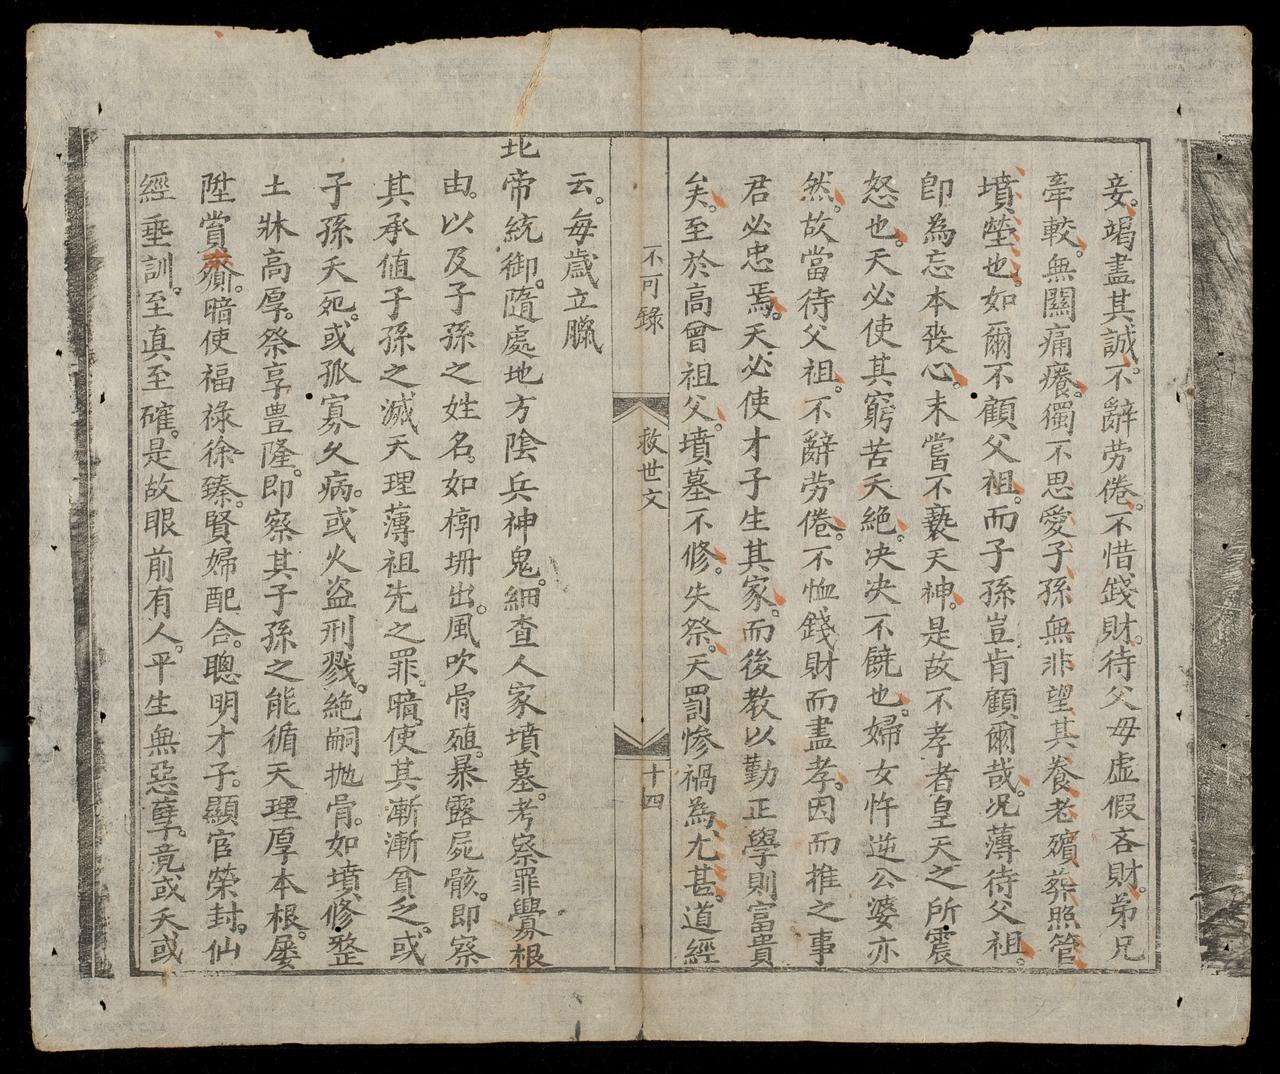 妾。竭盡其誠。不辭劳倦。不惜錢財。待父母虛假吝財。弟兄
牽較。無關痛癢。獨不思愛子孫無非望其養老殯葬照管
墳塋也。如爾不顧父祖。而子孫豈肯顧爾哉。况薄待父祖。
即為忘本丧心。未嘗不褻天神。是故不孝者皇天之所震
怒也。天必使其窮苦夭絶。决决不饒也。婦女忤逆公婆亦
然。故當待父祖。不辭劳倦。不恤錢財而盡孝。因而推之事
君必忠焉。天必使才子生其家。而後教以勤正學則富貴
矣。至於高曾祖父。墳墓不修。失祭。天罰慘禍為尤甚。道經
不可錄
救世文
十四
云。每歲立臘
北帝統御。隨處地方陰兵神鬼。細查人家墳墓。考察罪釁根
由。以及子孫之姓名。如槨坍出。風吹骨殖。暴露屍骸。即察
其承值子孫之滅天理薄祖先之罪。暗使其漸漸貧乏。或
子孫夭死。或孤寡久病。或火盜刑戮。絶嗣抛骨。如墳修整
土牀高厚。祭享豊隆。即察其子孫之能循天理厚本根。屢
陞賞。暗使福祿徐臻。賢婦配合。聰明才子。顯官榮封。仙
經垂訓。至真至確。是故眼前有人。平生無惡孽。竟或夭或